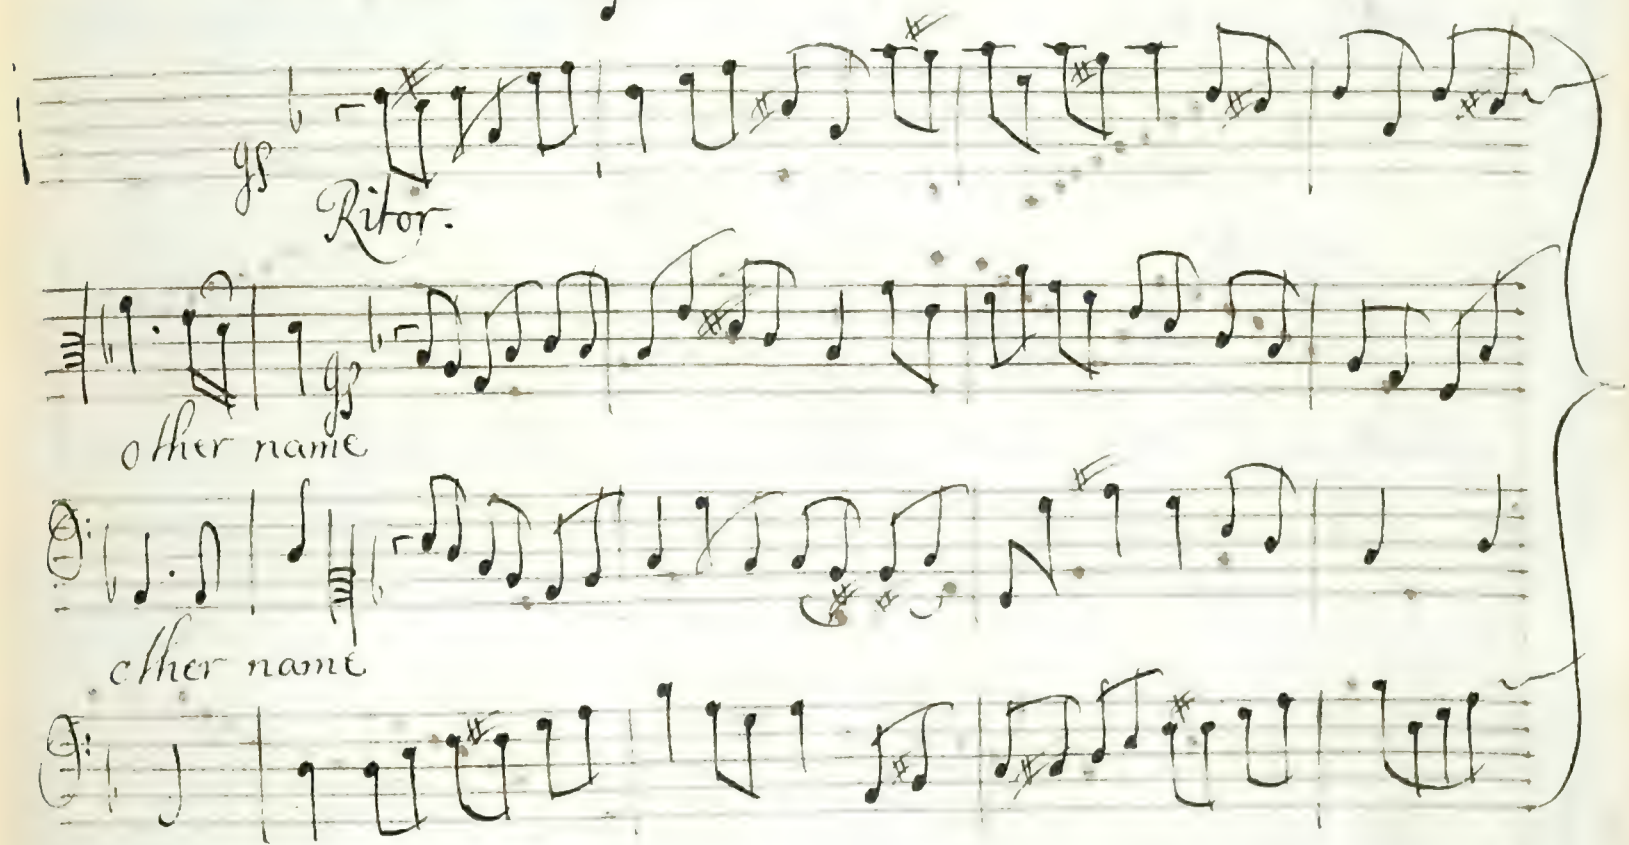 Ritor.
other name
other name